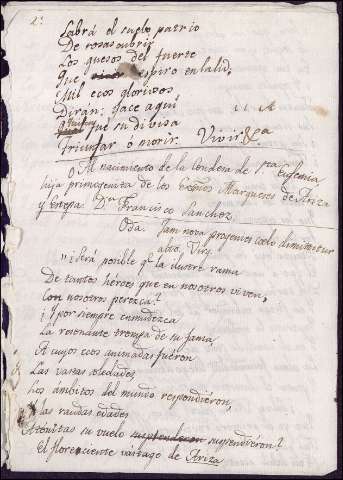 2
Sabrá el suelo patrio
De rosas cubrir
Los huesos del fuerte
Que espiro en la lid;
Mil ecos gloriosos
Diran: Jace aqui
fué su divisa
Triunfar ó morir. Vivir &a
Al nacimiento de la Condesa de Sta Eufemia
hija primogenita de los Marqueses de Ariza
y Estepa. Dn Francisco Sanchez.
Oda. Jam nova progenies coelo dimittitur
alto. Virg.
"¿Será posible qe. la ilustre rama
De tantos héroes que en nosotros viven,
Con nosotros perezca?
¿Y por siempre enmudezca
La resonante trompa de su fama,
A cuyos ecos animadas fuéron
Las vastas soledades,
Los ámbitos del mundo respondiéron,
las raudas edades
Atonitas su vuelo suspendieron suspendiéron?
El floreciente vástago de Ariza